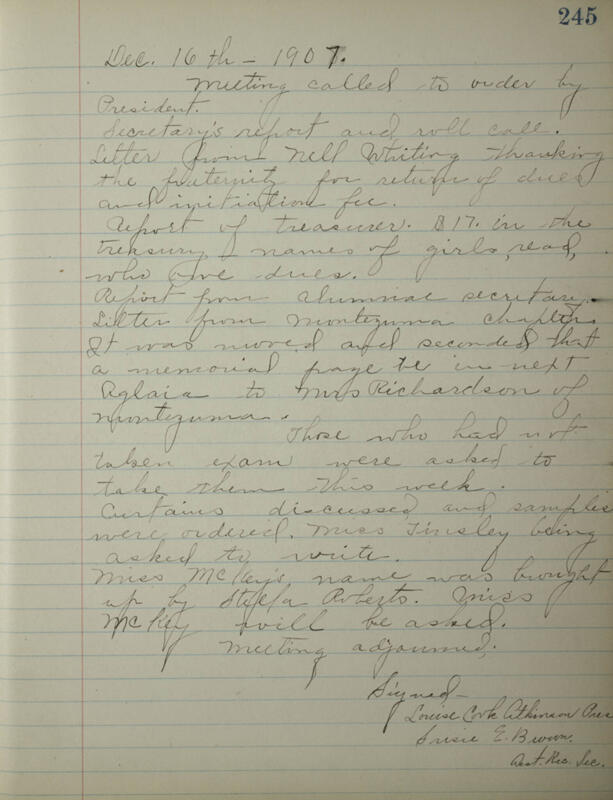 245
Dec. 16th - 1907.
Meeting called to order by
President.
Secretary's report and roll call.
Letter from Nell Whiting thanking
the fraternity for return of dues
and initiation fee.
Report of treasurer. $17. in the
treasury - names of girls, read,
who owe dues.
Report from alumnae secretary.
Letter from Montezuma chapter.
It was moved and seconded that
a memorial page be in next
Aglaia to Mrs Richardson of
Montezuma.
Those who had not
taken exam were asked to
take them this week.
Curtains discussed and samples
were ordered. Miss Tinsley being
asked to write.
Miss McKey's name was brought
up by Stella Roberts. Miss
McKey will be asked.
Meeting adjourned.
Signed -
Louise Cook Atkinson Pres
Susie E. Brown.
Asst. Rec. Sec.